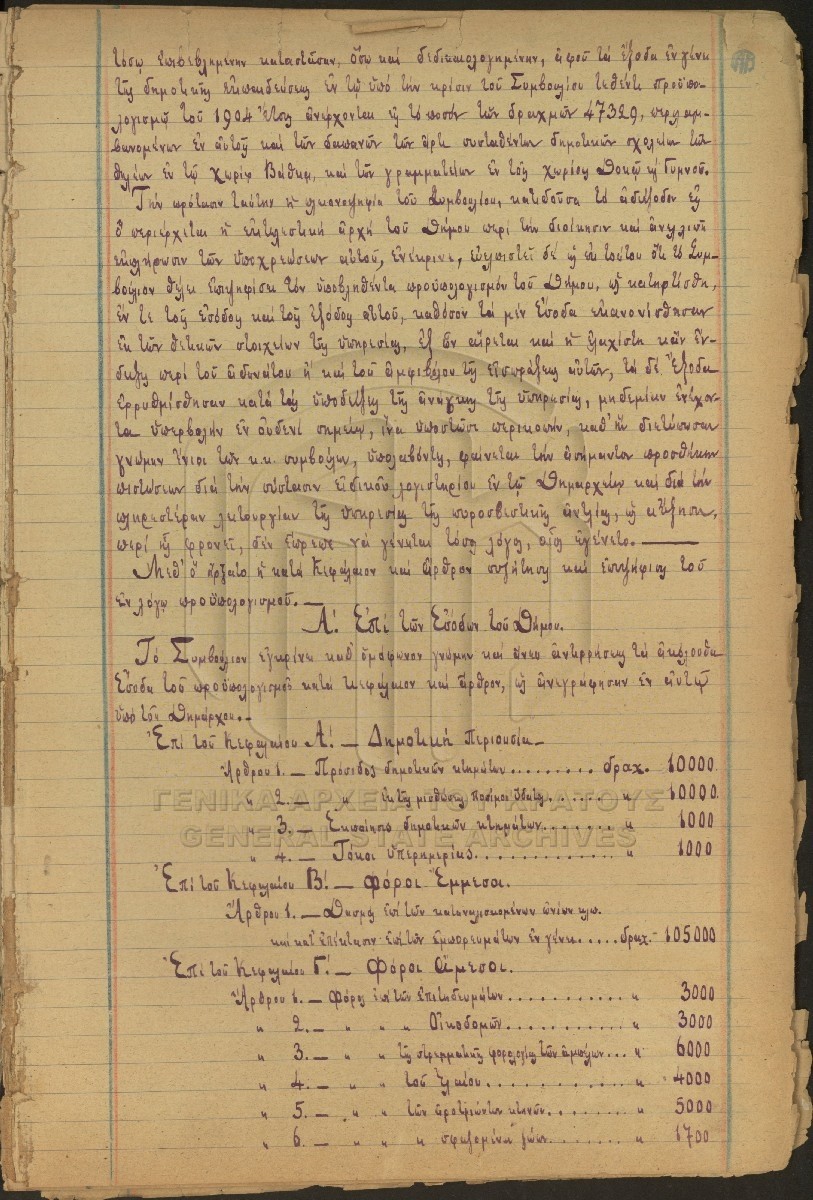 τόσῳ ἐπιβεβλημένην κατάστασιν, ὅσῳ καὶ δεδικαιολογημένην, ἀφοῦ τὰ ἔξοδα ἐν γένει
τῆς δημοτικῆς ἐκπαιδεύσεως ἐν τῷ ὑπὸ τὴν κρίσιν τοῦ Συμβουλίου τεθέντι προϋπο-
λογισμῷ τοῦ 1904 ἔτους ἀνέρχονται εἰς τὸ ποσὸν τῶν δραχμῶν 47329, περιλαμ-
βανομένων ἐν αὐτοῖς καὶ τῶν δαπανῶν τῶν ἄρτι συσταθέντων δημοτικῶν σχολείων τῶν
θηλέων ἐν τῷ χωρίῳ Βάθεια, καὶ τῶν γραμματείων ἐν τοῖς χωρίοις Δοκῷ καὶ Γυμνοῦ.
Τὴν πρότασιν ταύτην ἡ πλειονοψηφία τοῦ Συμβουλίου, κατιδοῦσα τὸ ἀδιέξοδον εἰς
ὃ περιέρχεται ἡ ἐκτελεστικὴ ἀρχὴ τοῦ Δήμου περὶ τὴν διοίκησιν καὶ ἀνελλιπῆ
ἐκπλήρωσιν τῶν ὑποχρεώσεων αὐτοῦ, ἐνέκρινε, εὐελπιστεῖ δὲ ἐπὶ τούτου ὅτι τὸ Συμ-
βούλιον θέλει ἐπιψηφίσει τὸν ὑποβληθέντα προϋπολογισμὸν τοῦ Δήμου, ὡς κατηρτίσθη,
ἔν τε τοῖς ἐσόδοις καὶ τοῖς ἐξόδοις αὐτοῦ, καθόσον τὰ μὲν Ἔσοδα ἐκανονίσθησαν
ἐκ τῶν θετικῶν στοιχείων τῆς ὑπηρεσίας, ἐξ ὧν αἴρεται καὶ ἡ ἐλαχίστη κἂν ἔν-
δειξις περὶ τοῦ ἀδυνάτου ἢ καὶ τοῦ ἀμφιβόλου τῆς εἰσπράξεως αὐτῶν, τὰ δὲ Ἔξοδα
ἐρρυθμίσθησαν κατὰ τὰς ὑποδείξεις τῆς ἀνάγκης τῆς ὑπηρεσίας, μηδεμίαν ἐνέχον-
τα ὑπερβολὴν ἐν οὐδενὶ σημείῳ, ἵνα ὑποστῶσι περικοπήν, καθ' ἣν διετύπωσαν
γνώμην ἔνιοι τῶν κ.κ. συμβούλων, ὑπολαβόντες, φαίνεται τὴν ἀσήμαντον προσθήκην
πιστώσεων διὰ τὴν σύστασιν εἰδικοῦ λογιστηρίου ἐν τῷ Δημαρχείῳ καὶ διὰ τὴν
πληρεστέραν λειτουργίαν τῆς ὑπηρεσίας τῆς πυροσβεστικῆς ἀντλίας, ὡς αὔξησιν,
περὶ ἧς φρονεῖ, δὲν ἔπρεπε νὰ γένηται τόσος λόγος, οἷος ἐγένετο.—
Μεθ' ὃ ἤρξατο ἡ κατὰ Κεφάλαιον καὶ ἄρθρον συζήτησις καὶ ἐπιψήφισις τοῦ
ἐν λόγῳ προϋπολογισμοῦ.—
Α'. Ἐπὶ τῶν Ἐσόδων τοῦ Δήμου.
Τὸ Συμβούλιον ἐγκρίνει καθ' ὁμόφωνον γνώμην καὶ ἄνευ ἀντιρρήσεως τὰ ἀκόλουθα
Ἔσοδα τοῦ προϋπολογισμοῦ κατὰ κεφάλαιον καὶ ἄρθρον, ὡς ἀνεγράφησαν ἐν αὐτῷ
ὑπὸ τοῦ Δημάρχου.—
Ἐπὶ τοῦ Κεφαλαίου Α'.— Δημοτικὴ περιουσία—
Ἄρθρου 1.— Πρόσοδος δημοτικῶν κτημάτων......... δραχ. 10000
" 2.— " ἐκ τῆς μισθώσεως ποσίμου ὕδατος....... " 10000
" 3.— Ἐκποίησις δημοτικῶν κτημάτων........ " 1000
" 4.— Τόκοι ὑπερημερίας............. " 1000
Ἐπὶ τοῦ Κεφαλαίου Β'.— Φόροι Ἔμμεσοι.
Ἄρθρου 1.— Δασμὸς ἐπὶ τῶν καταναλισκομένων ὠνίων κλπ.
καὶ κατ' ἐπέκτασιν ἐπὶ τῶν ἐμπορευμάτων ἐν γένει..... δραχ.— 105000
Ἐπὶ τοῦ Κεφαλαίου Γ'.— Φόροι Ἄμεσοι.
Ἄρθρου 1.— Φόρος ἐπὶ τῶν ἐπιτηδευμάτων........... " 3000
" 2.— " " " Οἰκοδομῶν........... " 3000
" 3.— " " τῆς στρεμματικῆς φορολογίας τῶν ἀμπέλων... " 6000
" 4.— " " τοῦ Ἐλαίου............ " 4000
" 5.— " " τῶν ἀροτριώντων κτηνῶν......... " 5000
" 6.— " " " σφαζομένων ζώων........ " 1700
ΓΕΝΙΚΑ ΑΡΧΕΙΑ ΤΟΥ ΚΡΑΤΟΥΣ
GENERAL STATE ARCHIVES